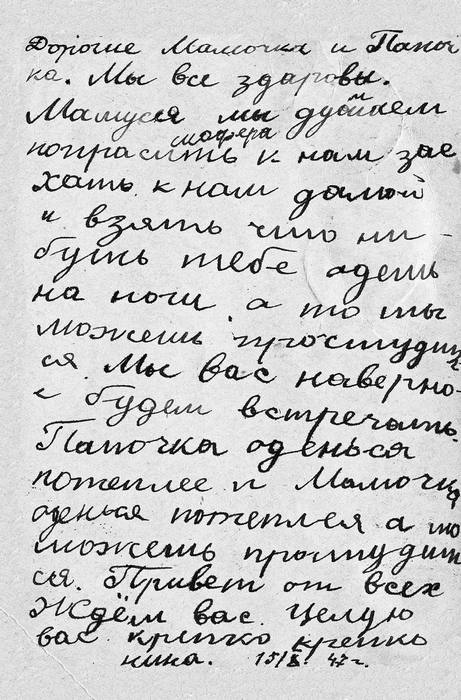 Дорогие Мамочка и Папоч
ка. Мы все здаровы.
Мамуся мы думаем
шофера
попрасить к нам зае
хать к нам дамой
и взять что ни-
буть тебе адеть
на ноги, а то ты
можешь простудить
ся. Мы вас наверно-
е будем встречать.
Папочка оденься
потеплее и Мамочка
оденься потеплея а то
можешь простудит
ся. Привет от всех
Ждём вас. Целую
вас крепко крепко
нина. 15/X 47 г.